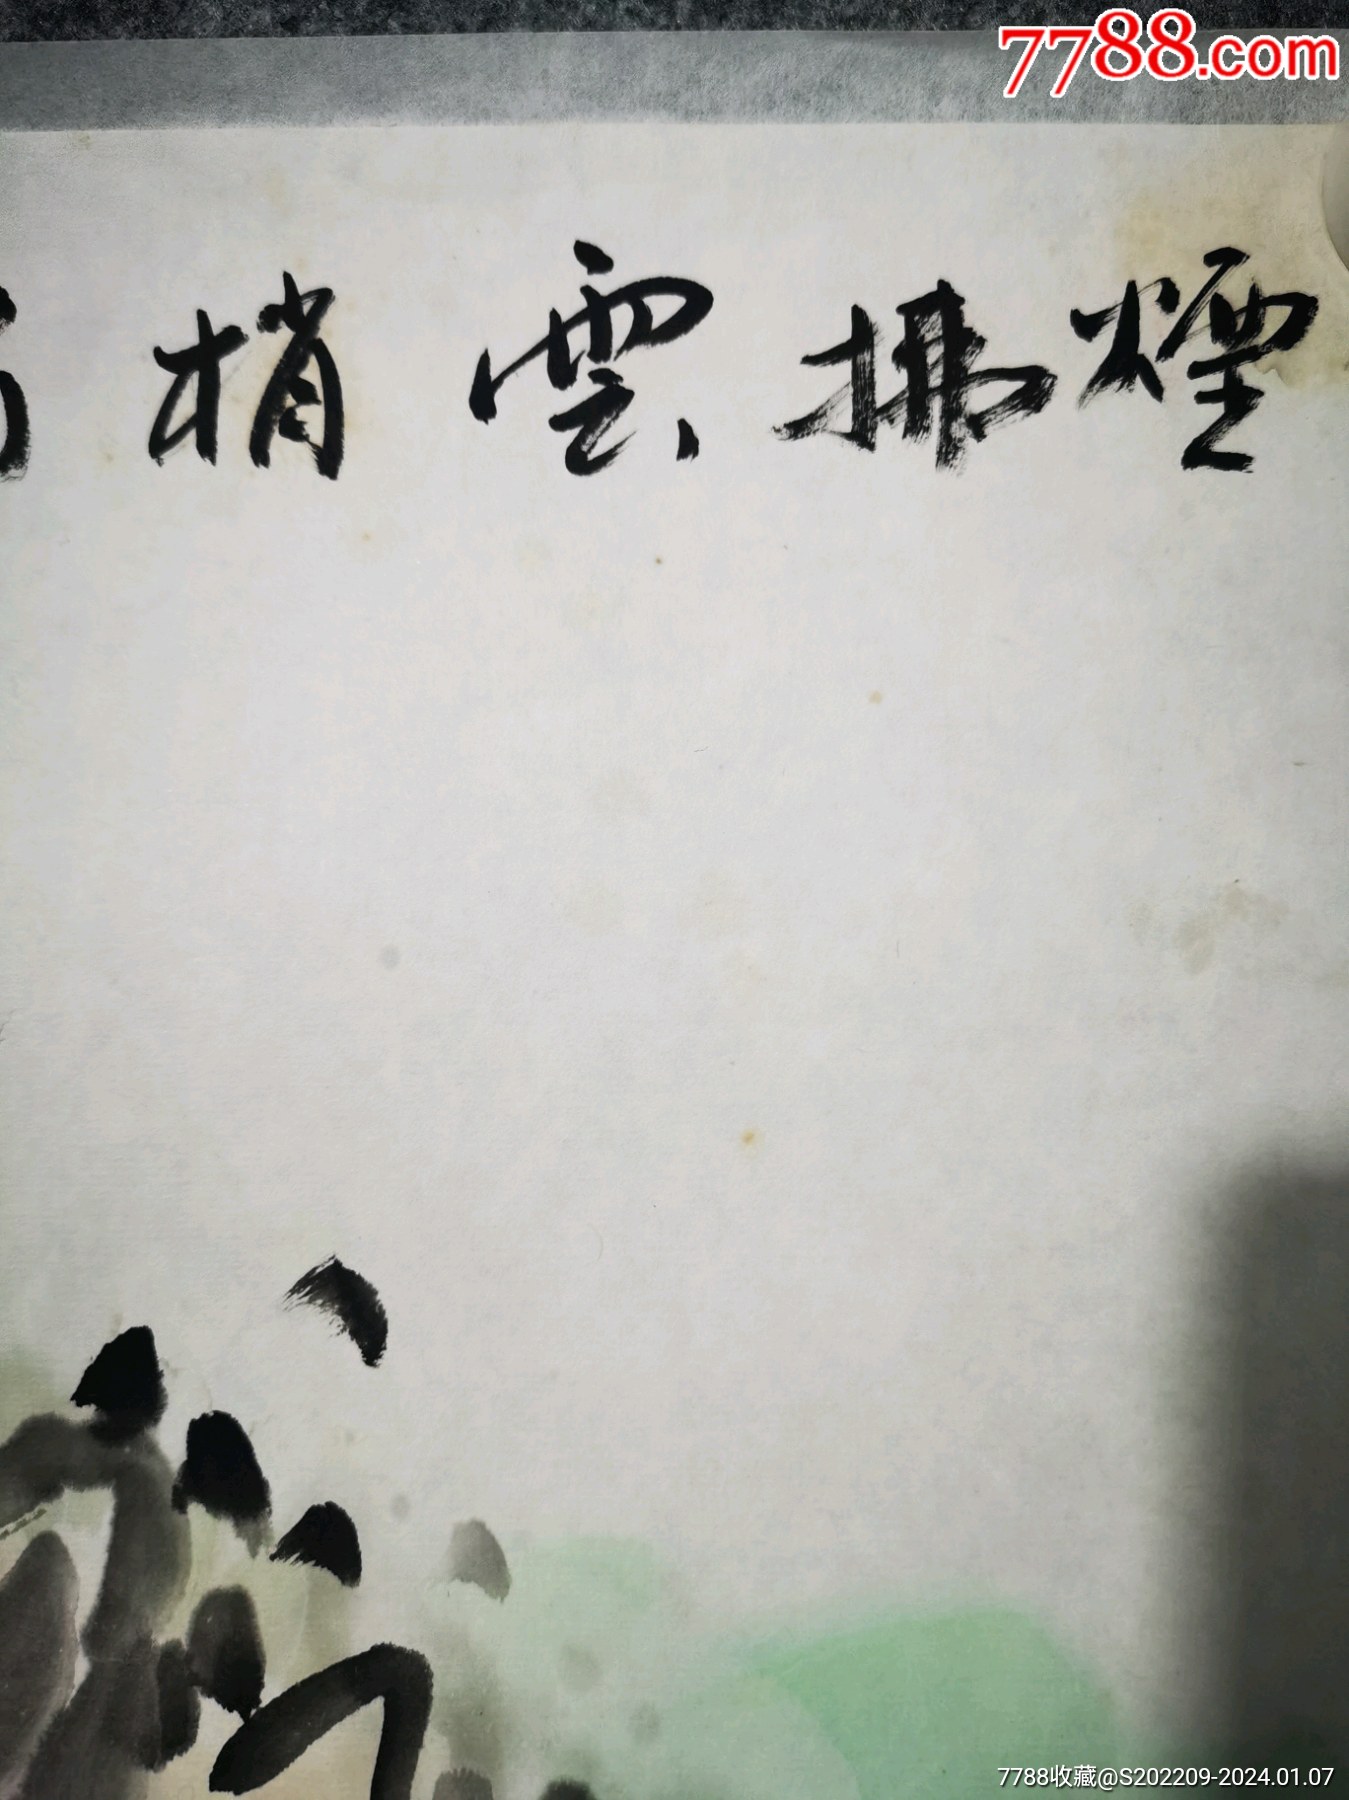 7788.com
煙拂雲梢
7788收藏@S202209-2024.01.07